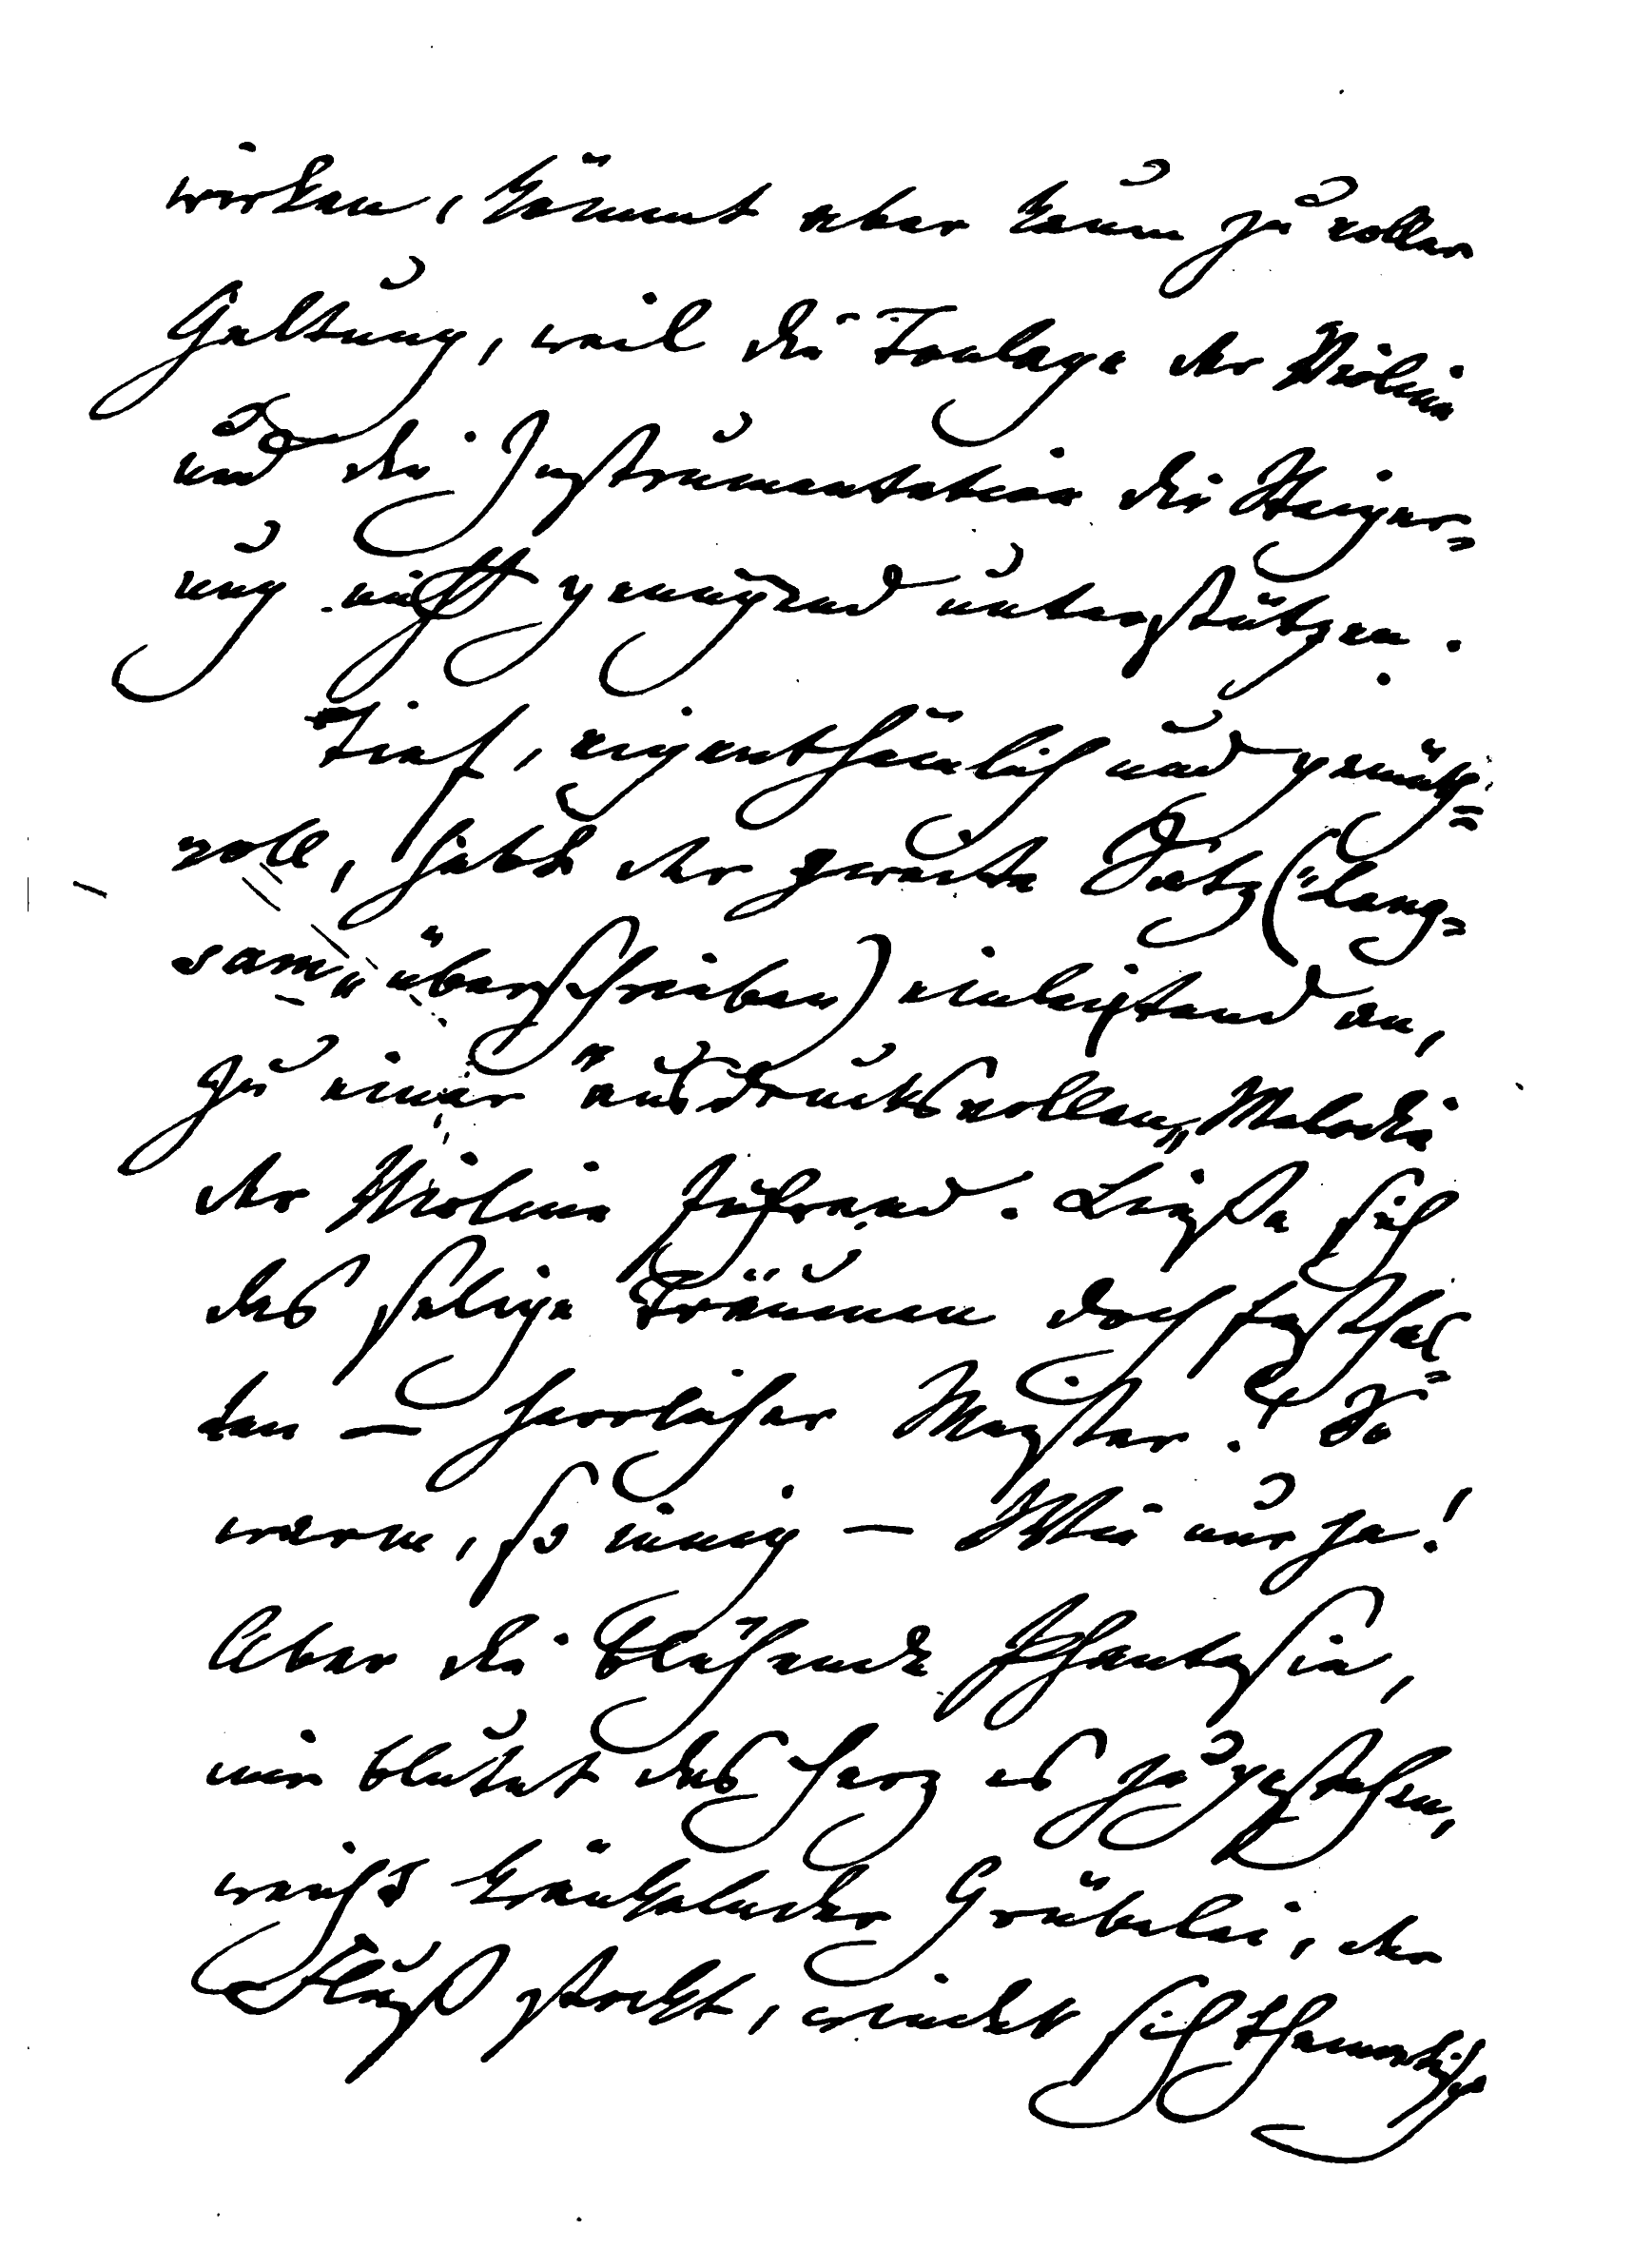 wirken, kömmt aber kaum zu voller
Geltung, weil die Tonlage der Violine
und die Instrumentation die Steiger=
ung nicht genügend unterstützen.
Tief, eigenthümlich und gemüth=
voll, hebt der zweite Satz ("lang=
sam" überschrieben) einleitend an,
zu einer "ausdrucksvollen" Melodie
der Violine führend. Ließe sich
das selige Träumen doch festhal=
ten — herrlicher Meister! So
warm, so innig — Wie nur je!
Aber die blühende Phantasie,
mir blutet das Herz es zu gestehen,
weicht kränkelnder Grübelei, der
Fluß stockt, windet sich thematisch